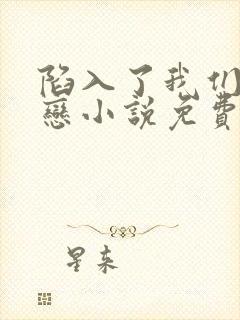 陷入了我们
戀小說免費
星来